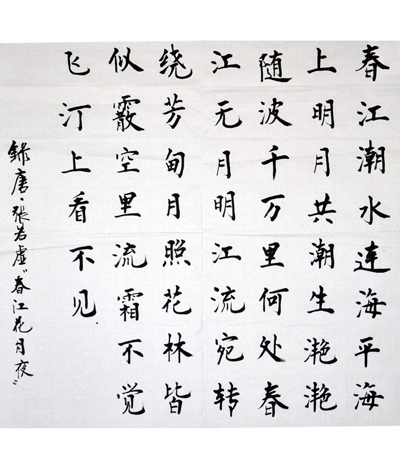 春江潮水连海平海
上明月共潮生滟滟
随波千万里何处春
江无月明江流宛转
绕芳甸月照花林皆
似霰空里流霜不觉
飞汀上看不见
録唐·張若虚“春江花月夜”